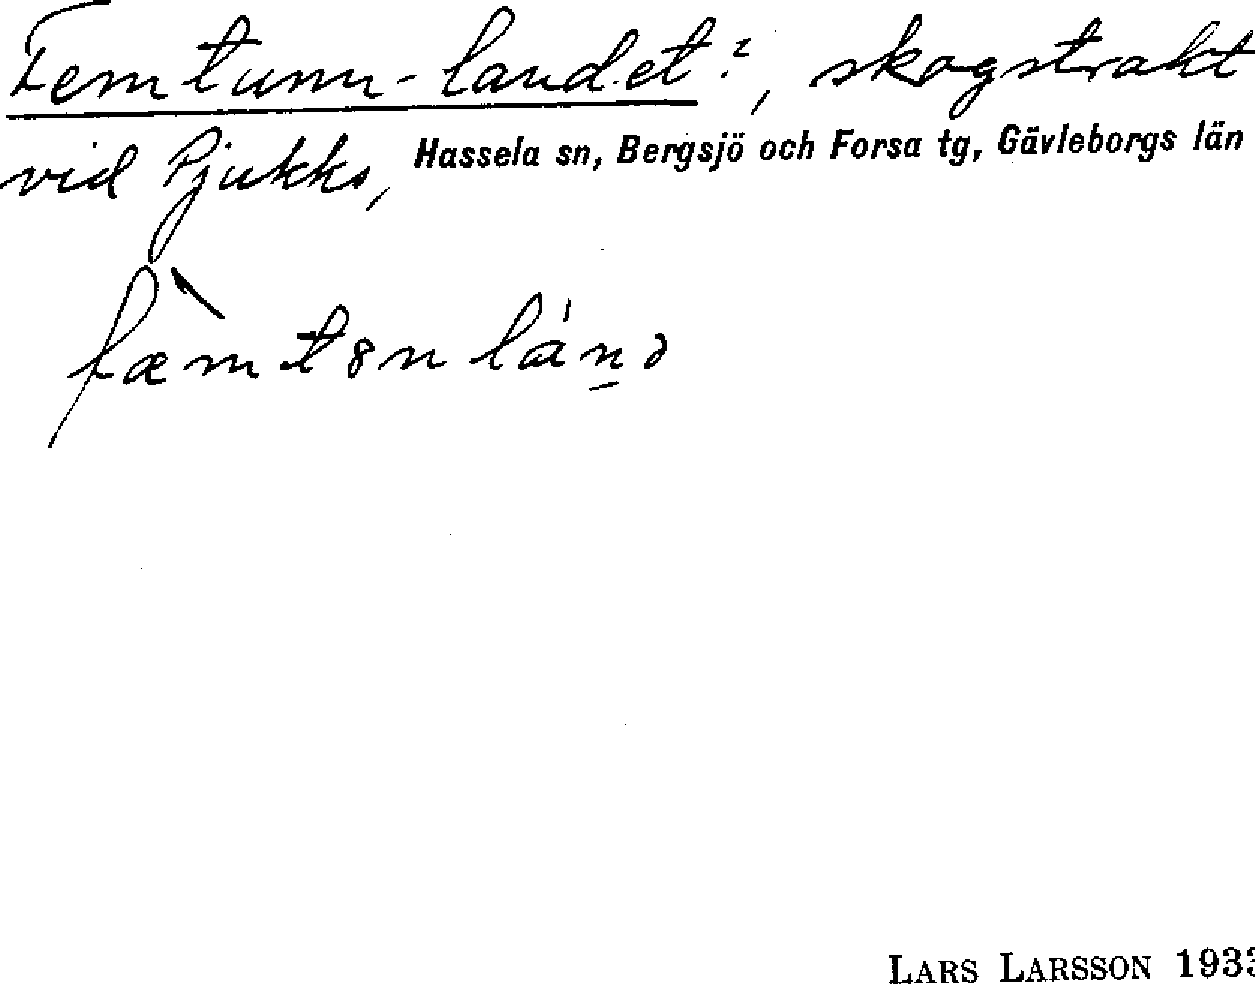 Femtunn-landet?, skogstrakt
vid Pjukko, Hassela sn, Bergsjö och Forsa tg, Gävleborgs län
fæ̀mtɜn lánə
LARS LARSSON 1933